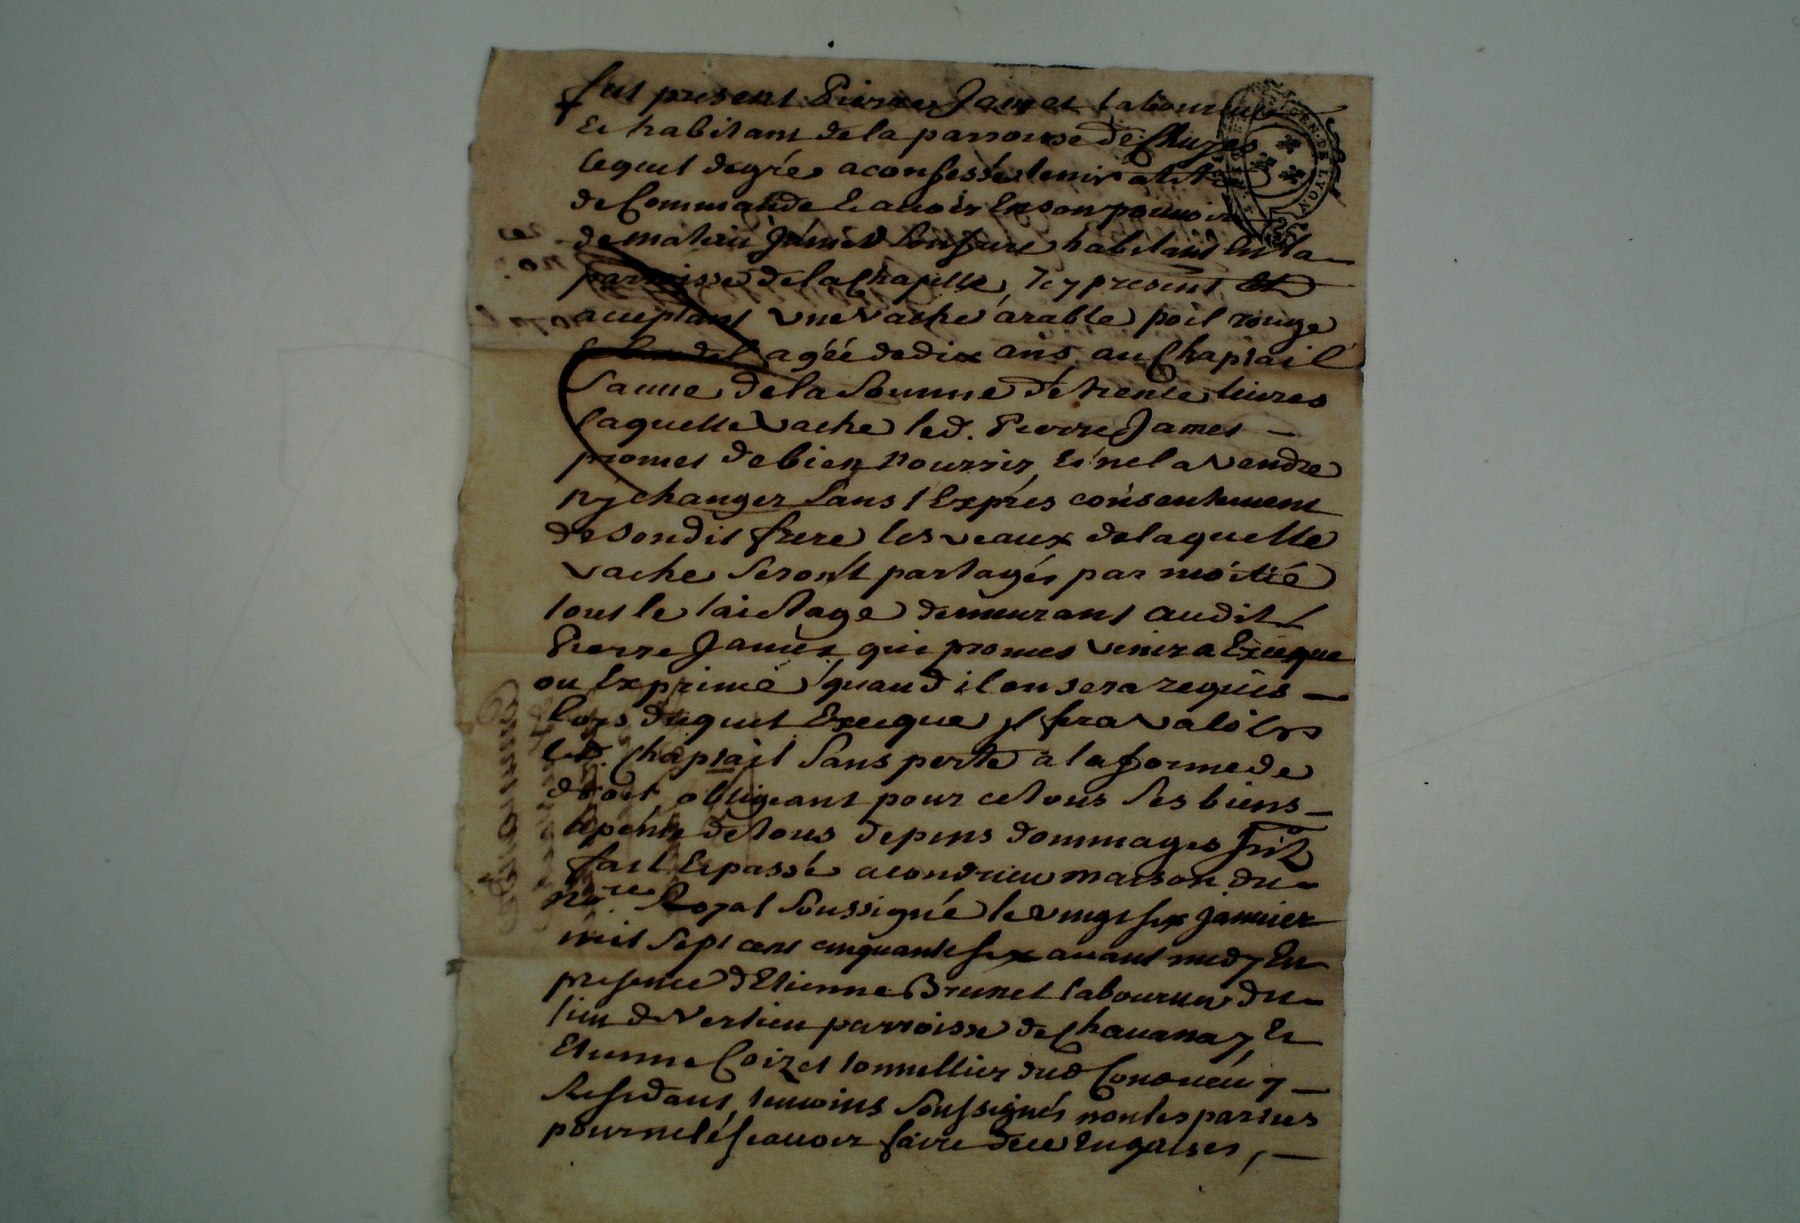 fut present Pierre James laboureur
et habitant de la parroisse de Chuyes
lequel degré a confessé tenir a titre
de Commande et avoir en son pouvoir
de mathieu James son frere habitant en la
parroisse de la Chapelle, icy present et
acceptant une vache arable poil rouge
agéé de dix ans au Chaptail
sauve de la somme de trente livres
laquelle vache led. Pierre James
promet de bien nourrir et ne la vendre
ny changer sans l'exprés consentement
de son dit frere les veaux de laquelle
vache seront partagés par moitié
tout le laictage demeurant audit
Pierre James, qui promet venir a Exeque
ou Exprimé quand il en sera requis
lors duquel Exeque il fera valoir
led. chaptail sans perte a la forme de
droit obligeant pour ce tous ses biens
a peine de tous depens dommages
fait et passé a condrieu maison du
nre Royal soussigné le vingt six janvier
mil sept cent cinquante six avant midy En
presence d'Etienne Brunet laboureur du
lieu de Verlieu parroisse de Chavanay, et
Etienne Coizet tonnellier dud Condrieu y
residant, temoins soussignés non les parties
pour ne le sçavoir faire de ce enquises,
GEN. DE LYON